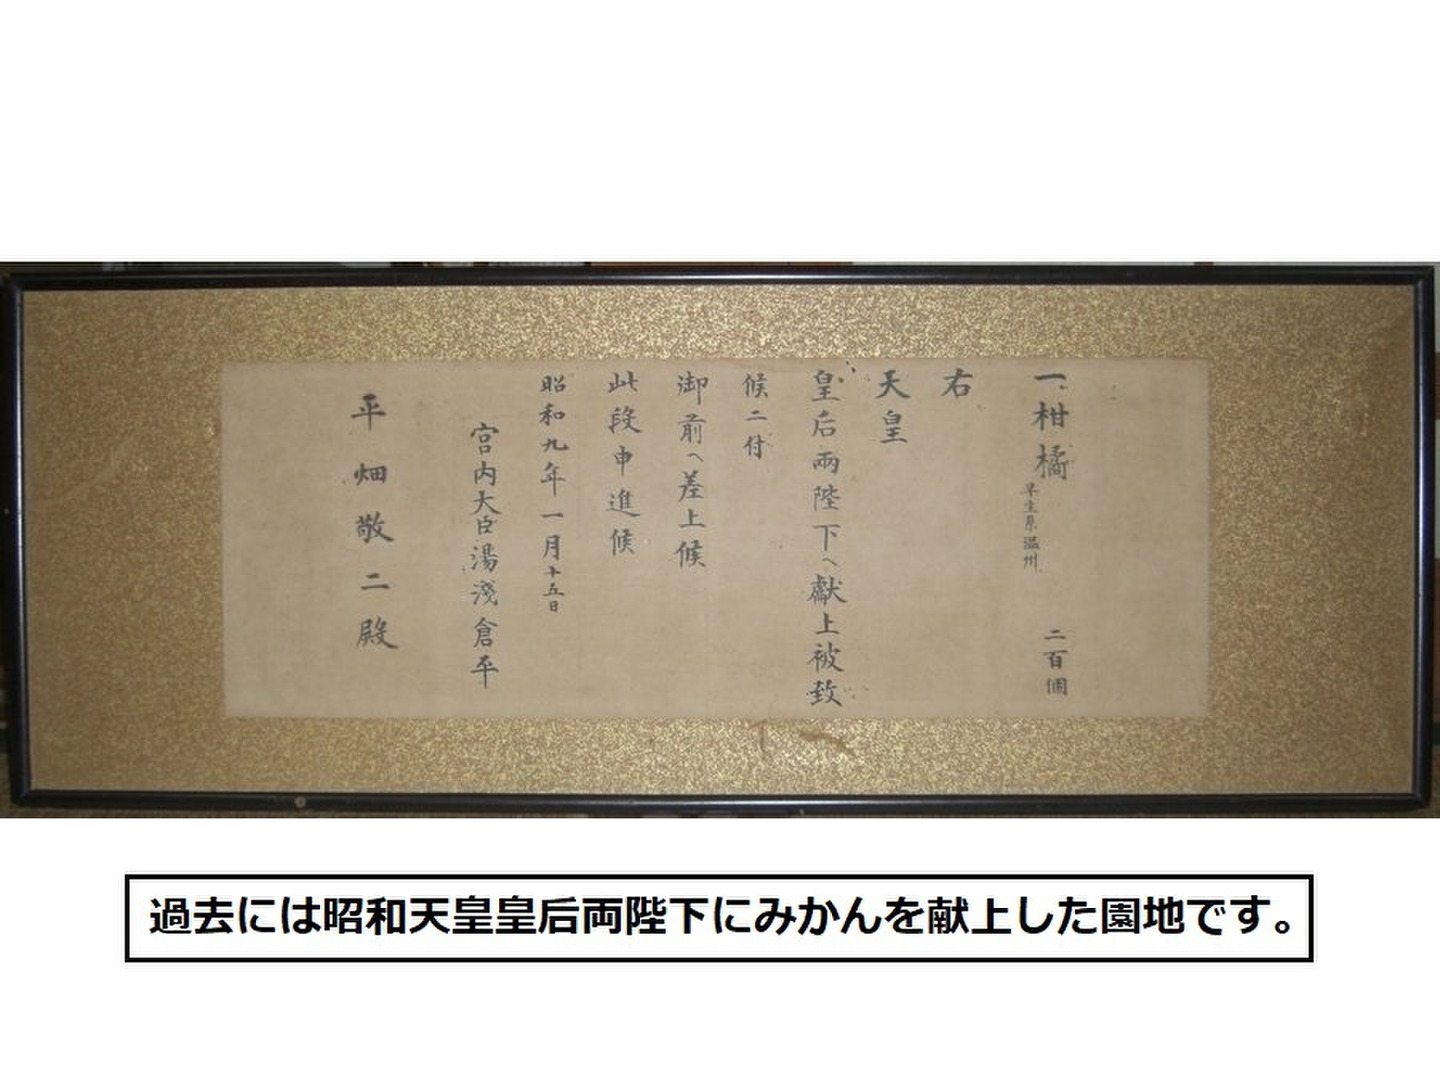 一、柑橘 早生系温州 二百個
右
天皇
皇后両陛下へ献上被致
候ニ付
御前へ差上候
此段申進候
昭和九年一月十五日
宮内大臣湯淺倉平
平畑敬二殿
過去には昭和天皇皇后両陛下にみかんを献上した園地です。